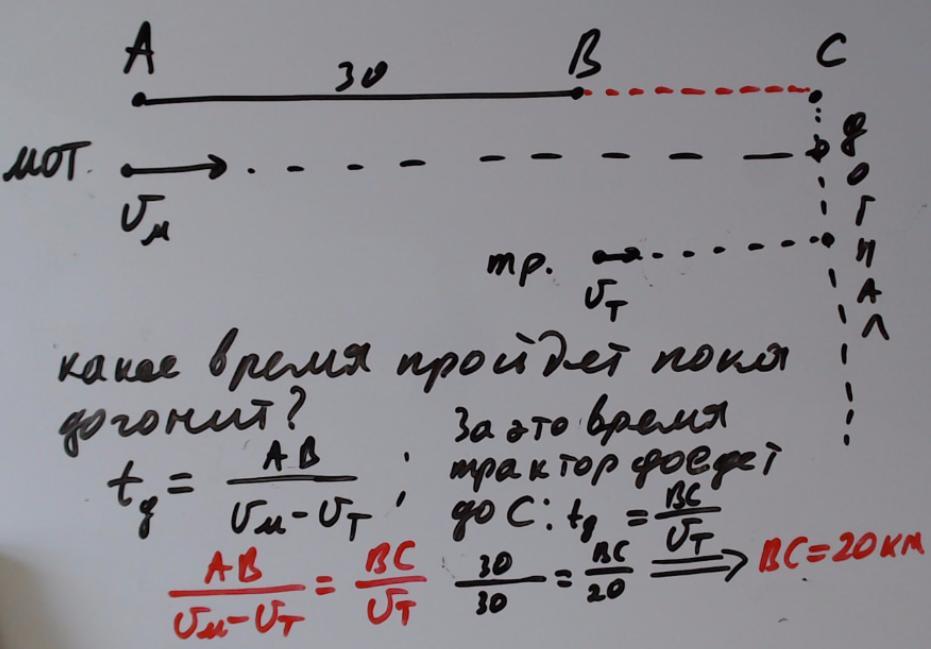 A B C
30
мот.
υм
тр.
υт
догнал
какое время пройдет пока
догонит?
tд = AB / (υм - υт) ;
За это время
трактор доедет
до С: tд = BC / υт
AB / (υм - υт) = BC / υт
30 / 30 = BC / 20 ⟹ BC = 20 км